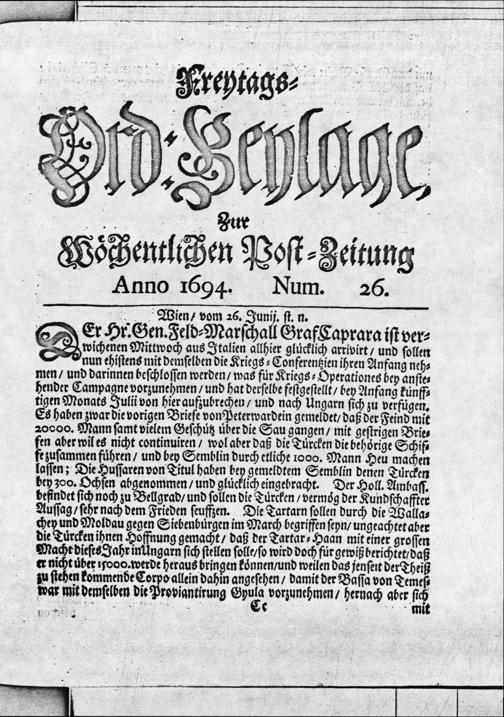 Freytags-
Ord-Beylage,
Zur
Wöchentlichen Post-Zeitung
Anno 1694. Num. 26.
Wien/ vom 26. Junij. st. n.
DEr Hr. Gen. Feld-Marschall Graf Caprara ist ver-
wichenen Mittwoch aus Italien allhier glücklich arrivirt/ und sollen
nun ehistens mit demselben die Kriegs-Conferenzien ihren Anfang neh-
men/ und darinnen beschlossen werden/ was für Kriegs-Operationes bey anste-
hender Campagne vorzunehmen/ und hat derselbe festgestellt/ bey Anfang künff-
tigen Monats Julii von hier aufzubrechen/ und nach Ungarn sich zu verfügen.
Es haben zwar die vorigen Briefe von Peterwardein gemeldet/ daß der Feind mit
20000. Mann samt vielem Geschütz über die Sau gangen/ mit gestrigen Brie-
fen aber wil es nicht continuiren/ wol aber daß die Türcken die behörige Schif-
fe zusammen führen/ und bey Semblin durch etliche 1000. Mann Heu machen
lassen; Die Hussaren von Titul haben bey gemeldtem Semblin denen Türcken
bey 300. Ochsen abgenommen/ und glücklich eingebracht. Der Holl. Ambass.
befindet sich noch zu Bellgrad/ und sollen die Türcken/ vermög der Kundschaffter
Aussag/ sehr nach dem Frieden seuffzen. Die Tartarn sollen durch die Walla-
chey und Moldau gegen Siebenbürgen im March begriffen seyn/ ungeachtet aber
die Türcken ihnen Hoffnung gemacht/ daß der Tartar-Haan mit einer grossen
Macht dieses Jahr in Ungarn sich stellen solle/ so wird doch für gewiß berichtet/ daß
er nicht über 15000. werde heraus bringen können/ und weilen das jenseit der Theiß
zu stehen kommende Corpo allein dahin angesehen/ damit der Bassa von Temes-
war mit demselben die Proviantirung Gyula vorzunehmen/ hernach aber sich
Cc mit